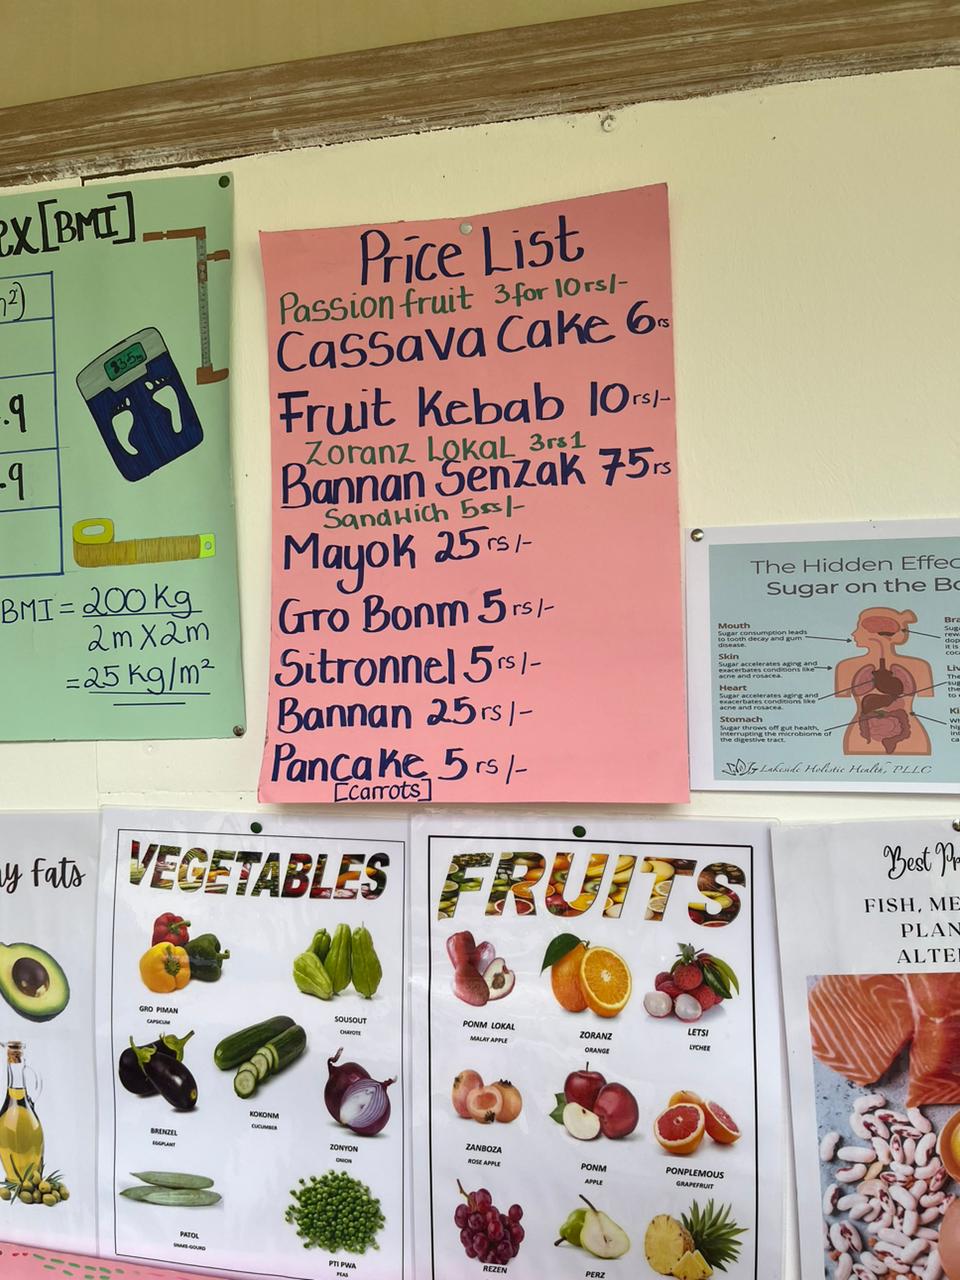 [BMI]
BMI = 200 Kg
2m X 2m
= 25 Kg/m²
Price List
Passion fruit 3 for 10 rs/-
Cassava Cake 6 rs
Fruit Kebab 10 rs/-
Zoranz Lokal 3rs 1
Bannan Senzak 75 rs
Sandwich 5 rs/-
Mayok 25 rs/-
Gro Bonm 5 rs/-
Sitronnel 5 rs/-
Bannan 25 rs/-
Pancake 5 rs/-
[carrots]
The Hidden Effec
Sugar on the Bo
Mouth
Sugar consumption leads
to tooth decay and gum
disease.
Skin
Sugar accelerates aging and
exacerbates conditions like
acne and rosacea.
Heart
Sugar accelerates aging and
exacerbates conditions like
acne and rosacea.
Stomach
Sugar throws off gut health,
interrupting the microbiome of
the digestive tract.
Lakeside Holistic Health, PLLC
Fats
VEGETABLES
GRO PIMAN
CAPSICUM
SOUSOUT
CHAYOTE
BRENZEL
EGGPLANT
KOKONM
CUCUMBER
ZONYON
ONION
PATOL
SNAKE-GOURD
PTI PWA
PEAS
FRUITS
PONM LOKAL
MALAY APPLE
ZORANZ
ORANGE
LETSI
LYCHEE
ZANBOZA
ROSE APPLE
PONM
APPLE
PONPLEMOUS
GRAPEFRUIT
REZEN
PERZ
Best Pr
FISH, ME
PLAN
ALTE